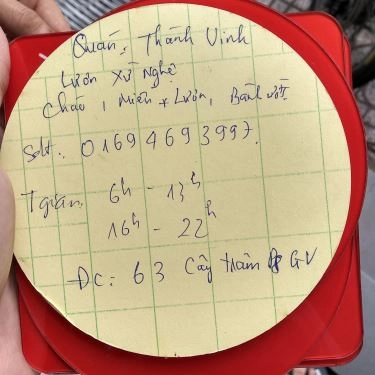 Quán: Thành Vinh
Lươn Xứ Nghệ
Cháo, Miến + Lươn, Bánh ướt.
Sđt: 01694693997.
T gian: 6h - 13h
16h - 22h
ĐC: 63 Cây trâm GV